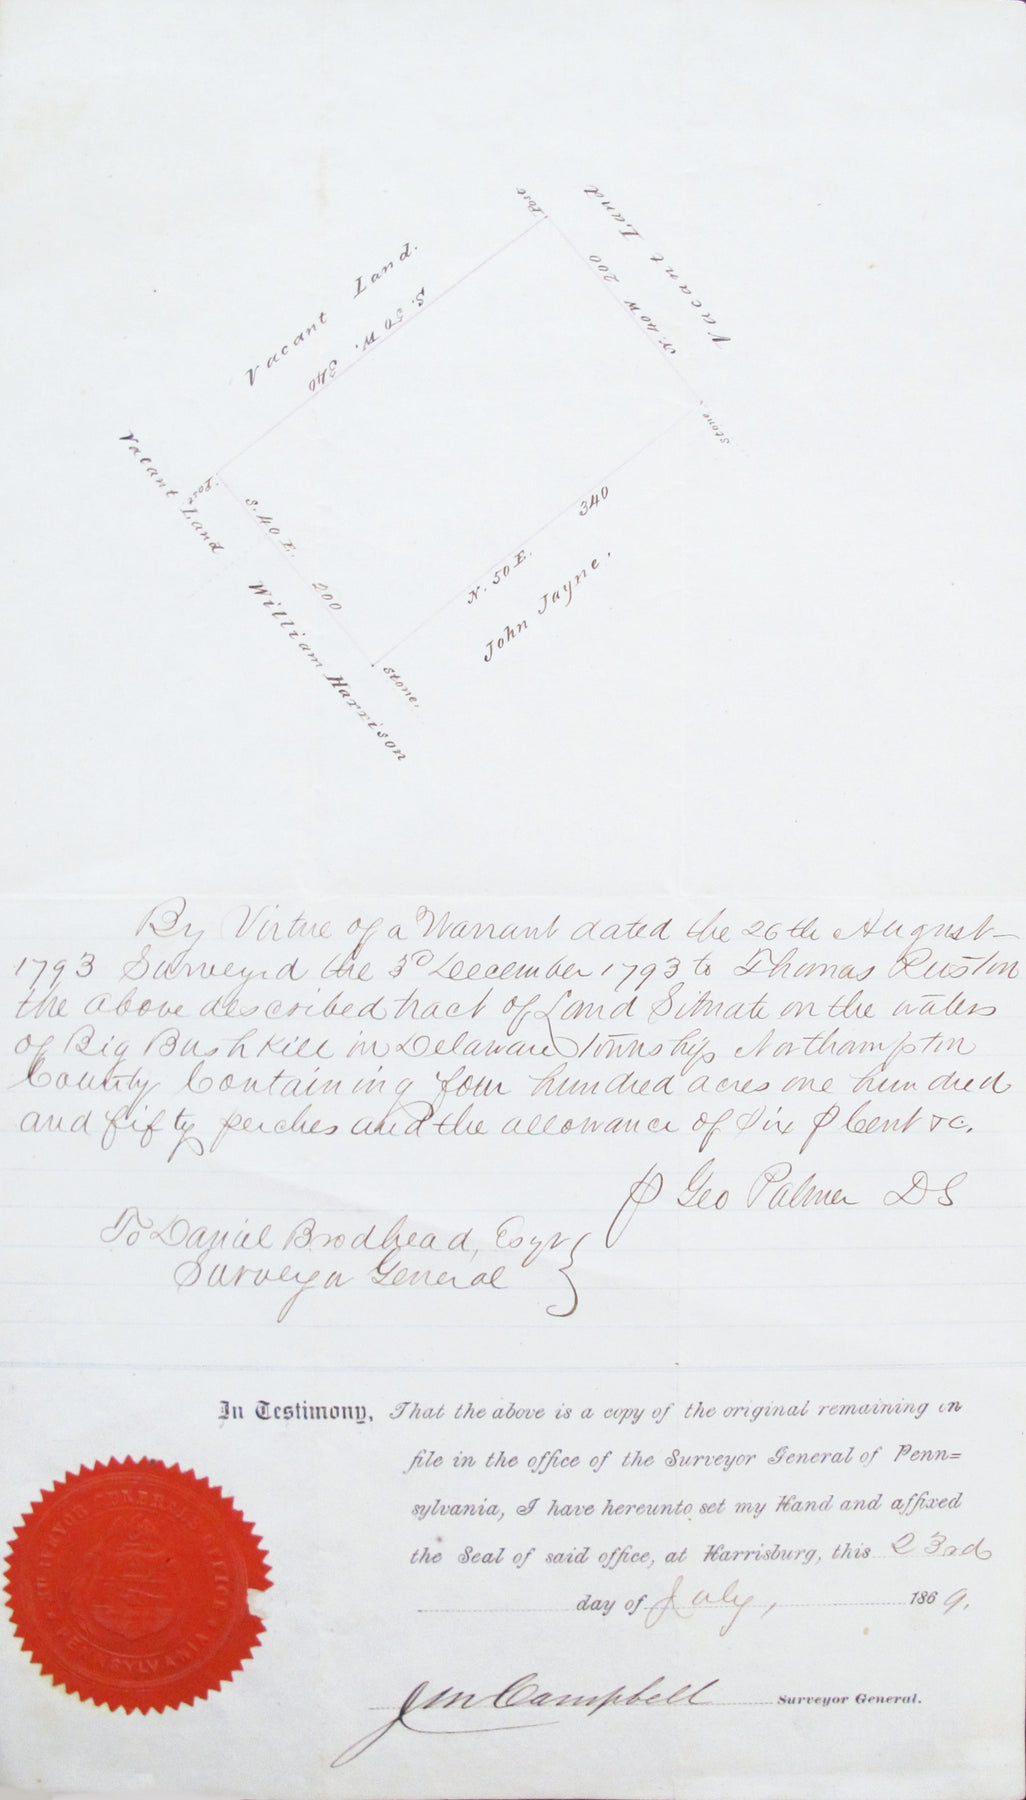 Post
Vacant Land
Vacant Land.
N. 40 W 200
S. 50 W. 340
Stone
Vacant Land
Post
S. 40 E. 200
340
N. 50 E.
John Jayne.
William Harrison
Stone.
By Virtue of a Warrant dated the 26th August
1793 Surveyed the 3d December 1793 to Thomas Ruston
the above described tract of Land Situate on the waters
of Big Bushkill in Delaware Township Northampton
County Containing four hundred acres one hundred
and fifty perches and the allowance of Six ⅌ Cent &c.
⅌ Geo Palmer DS
To Daniel Brodhead, Esqr
Surveyor General
In Testimony, That the above is a copy of the original remaining on
file in the office of the Surveyor General of Penn=
sylvania, I have hereunto set my Hand and affixed
the Seal of said office, at Harrisburg, this 23rd
day of July, 1869.
SURVEYOR GENERAL'S OFFICE
PENNSYLVANIA
Jm Campbell Surveyor General.